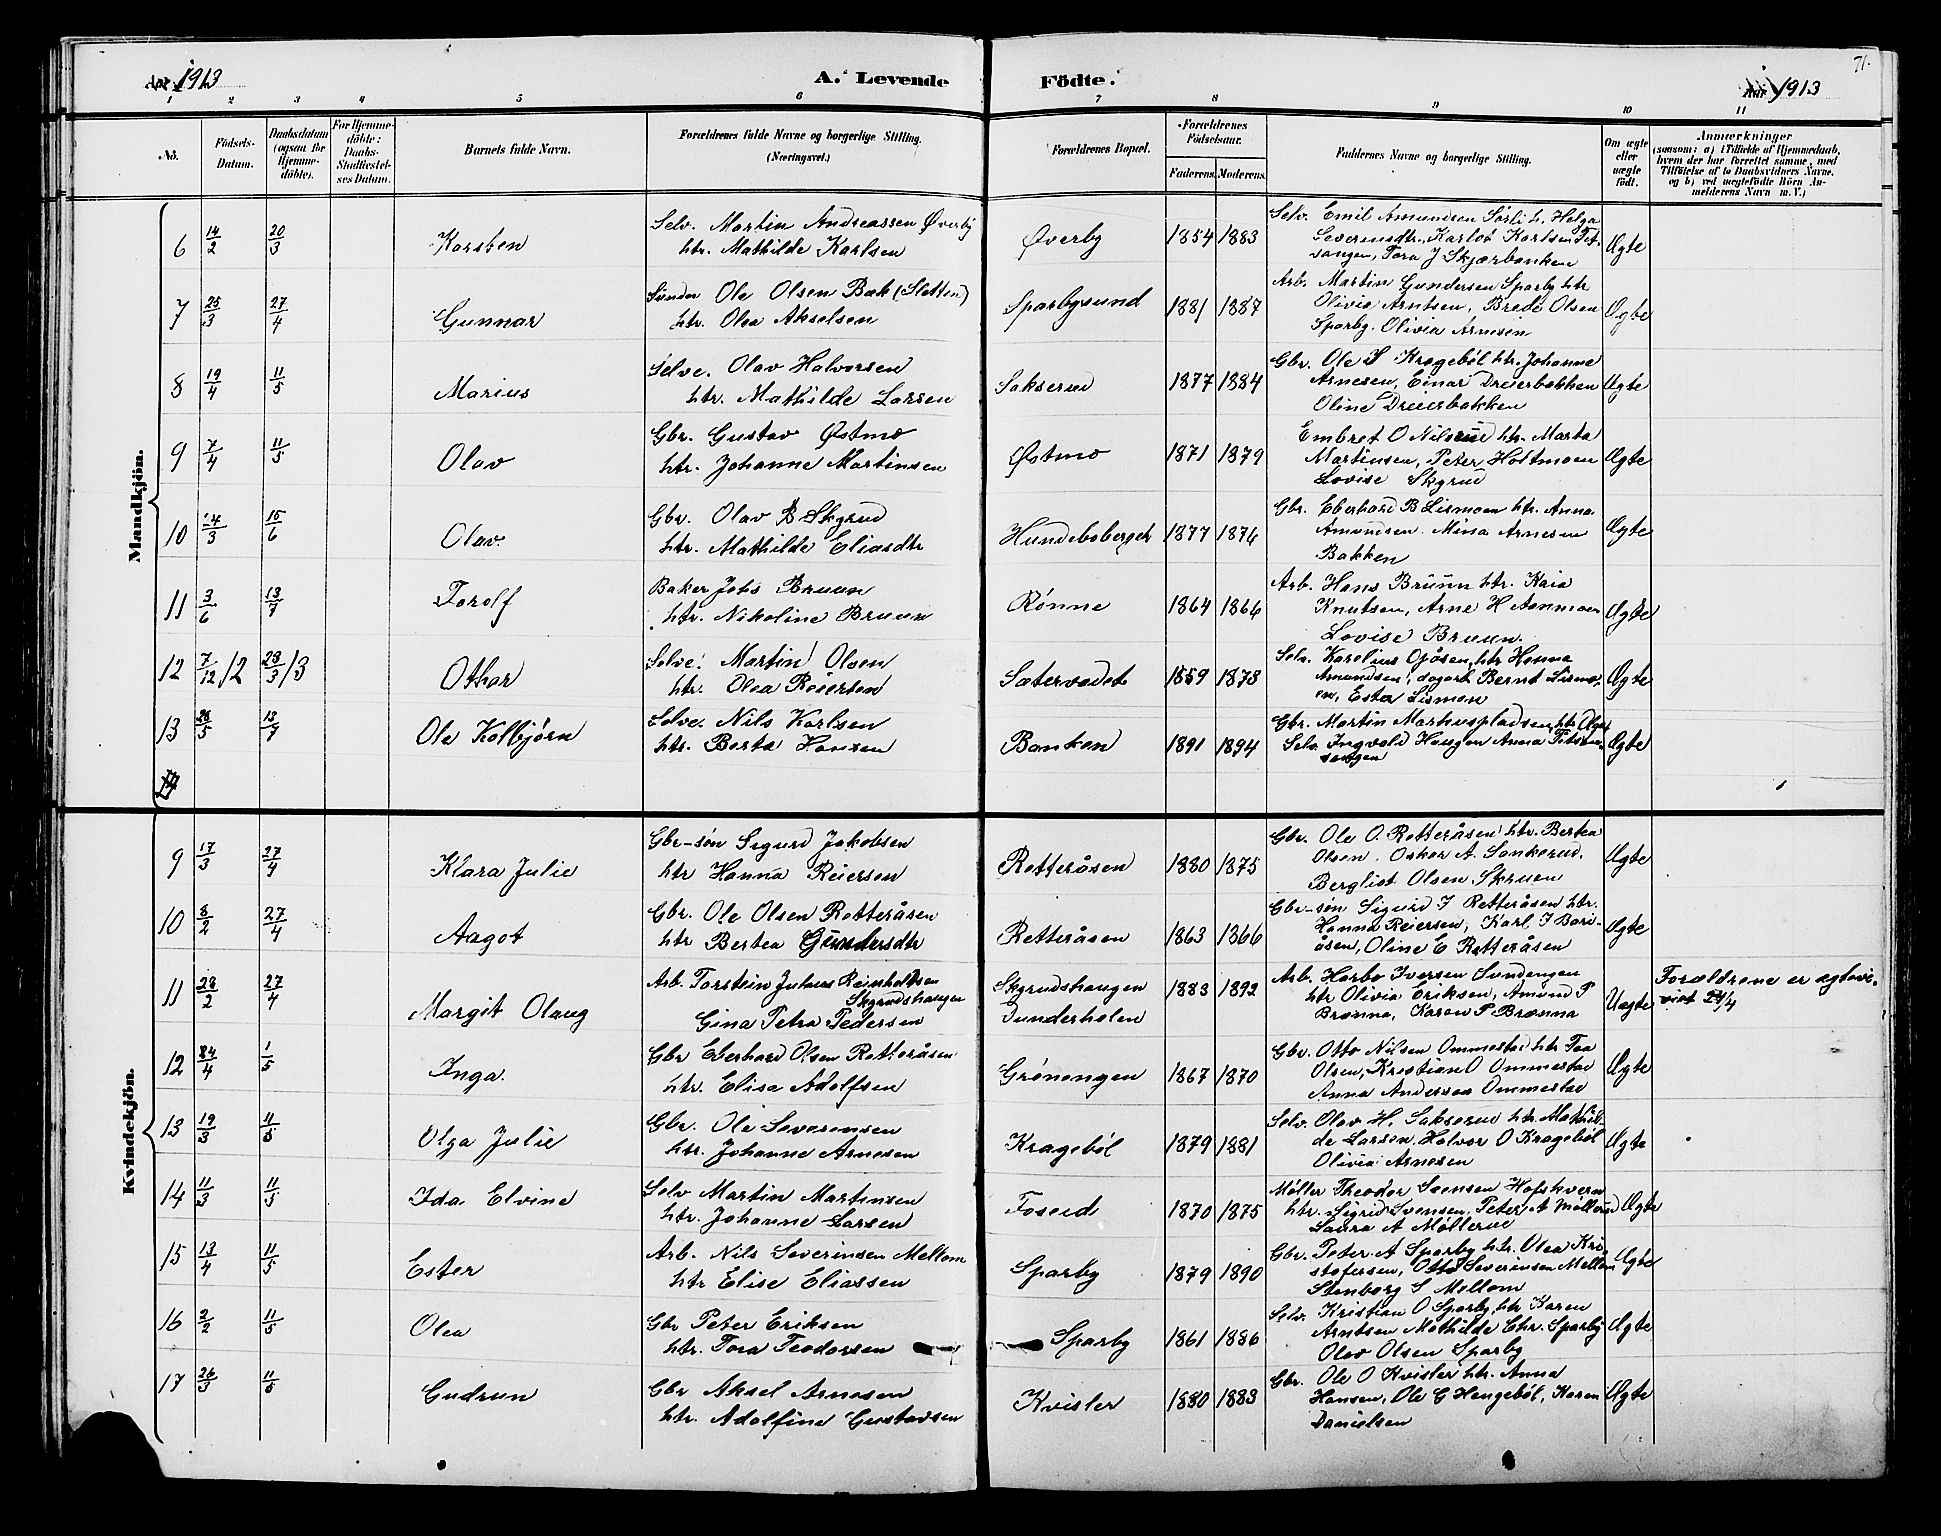 Aar 1913
A. Levende Födte.
Aar 1913
71.
1 2 3 4 5 6 7 8 9 10 11
No.
Födsels-Datum.
Daabsdatum (ogsaa for Hjemme-döbte).
For Hjemme-döbte: Daabs-Stadfæstel-ses Datum.
Barnets fulde Navn.
Forældrenes fulde Navne og borgerlige Stilling. (Næringsvei.)
Forældrenes Bopæl.
Forældrenes Födselsaar.
Faderens. Moderens.
Faddernes Navne og borgerlige Stilling.
Om ægte eller uægte födt.
Anmærkninger
(saasom: a) i Tilfælde af Hjemmedaab, hvem der har forrettet samme, med Tilföielse af to Daabsvidners Navne, og b) ved uægtefödte Börn Anmelderens Navn m. V.)
Mandkjön.
6 14/2 20/3 Karsten
Selv. Martin Andreassen Øverby
htr. Mathilde Karlsen
Øverby 1854 1883
Selv. Emil Amundsen Sørli h. Helga
Severinsdtr., Karloi Karlsen Tit-
sangen, Tora J Skjærbanken
Ægte
7 25/3 27/4 Gunnar
Ole Olsen Bak (Sletten)
htr. Olea Akselsen
Sparbysund 1881 1887
Arb. Martin Gundersen Sparby htr
Olivia Arntsen, Brede Olsen
Sparby. Olivia Arnesen
Ægte
8 19/4 11/5 Marius
Selve. Olav Halvorsen
htr. Mathilde Larsen
Sakserud 1877 1884
Gbr. Ole S Kragebøl htr. Johanne
Arnesen, Einar Dreierbakken
Oline Dreierbakken
Ægte
9 7/4 11/5 Olav
Gbr. Gustav Østmo
htr. Johanne Martinsen
Østmo 1871 1879
Embret O Nilsrud htr. Marta
Martinsen, Peter Holtmoen
Lovise Skyrud
Ægte
10 14/3 15/6 Olav.
Gbr. Olav B Skyrud
htr. Mathilde Eliasdtr
Hundebsberget 1877 1876
Gbr. Eberhard B Lismoen htr. Anna
Amundsen. Mina Arnesen
Bakken
Ægte
11 3/6 13/7 Torolf
Baker Johs Bruun
htr. Nikoline Bruun
Rønne 1864 1866
Arb. Hans Bruun htr. Kaia
Knutsen, Arne H Aanmoen
Lovise Bruun.
Ægte
12 7/12 12 23/3 13 Othar
Selve. Martin Olsen
htr. Olea Reiersen
Sætervadet 1859 1873
Selv. Karelius Olsen htr Hanna
Amundsen, dagarb Bernt Lismo-
en, Esta Lismoen
Ægte
13 26/5 13/7 Ole Kolbjørn
Selve. Nils Karlsen
htr. Berta Hansen
Banken 1891 1894
Gbr. Martin Marhuspladsen, htr Olga
Selv. Ingvald Haugen Anna Titsan-
sangen
Ægte
14
Kvindekjön.
9 17/3 27/4 Klara Julie
Gbr-søn Sigurd Jakobsen
htr Hanna Reiersen
Retteråsen 1880 1875
Gbr. Ole O. Retteråsen htr. Bertea
Olsen. Oskar A. Sankerud.
Bergliot Olsen Skruen
Ægte
10 8/2 27/4 Aagot
Gbr. Ole Olsen Retteråsen
htr Bertea Gundersdtr
Retteråsen 1863 1866
Gbr-søn Sigurd J Retteråsen htr.
Hanna Reiersen, Karl J Bari-
åsen, Oline E Retteråsen
Ægte
11 28/2 27/4 Margit Olaug
Arb. Torstein Julius Reinholdtsen
Skyrudshaugen
Gina Petra Pedersen
Skyrudshaugen
Dunderholen
1883 1892
Arb. Harbo Iversen Sundengen
htr Olivia Eriksen, Amund P
Brænna, Karen P Brænna
Uægte
Forældrene er ægtevi-
viet 27/4
12 24/4 1/5 Inga.
Gbr Eberhard Olsen Retteråsen
htr. Elisa Adolfsen
Grønengen 1867 1870
Gbr. Otto Nilsen Ommestad htr Tea
Olsen, Kristian O Ommestad
Anna Andersen Ommestad
Ægte
13 19/3 11/5 Olga Julie
Gbr. Ole Severensen
htr. Johanne Arnesen
Kragebøl 1879 1881
Selv. Olav H. Sakserud htr. Mathil-
de Larsen, Halvor O Kragebøl
Olivia Arnesen
Ægte
14 11/3 11/5 Ida Elvine
Selv Martin Martinsen
htr. Johanne Larsen
Foseid 1870 1875
Møller Theodor Svensen Hofskvern
htr. Sigrid Svensen. Peter A Møllerud
Laura A Møllerud
Ægte
15 13/4 11/5 Ester
Arb. Nils Severinsen Mellom
htr Elise Eliassen
Sparby 1879 1890
Gbr. Peter A Sparby htr. Olea Kri-
stofersen, Otto Severinsen Mellom
Stenborg S Mellom
Ægte
16 2/2 11/5 Olea
Gbr Peter Eriksen
htr. Tora Teodorsen
Sparby 1861 1886
Selv. Kristian O Sparby, htr Karen
Arntsen Mathilde Chr. Sparby
Olav Olsen Sparby
Ægte
17 26/3 11/5 Gudrun
Gbr Aksel Arnesen
htr. Adolfine Gustavsen
Kvisler 1880 1883
Gbr. Ole O Kvisler htr. Anna
Hansen, Ole G Hengebøl, Karen
Danielsen
Ægte